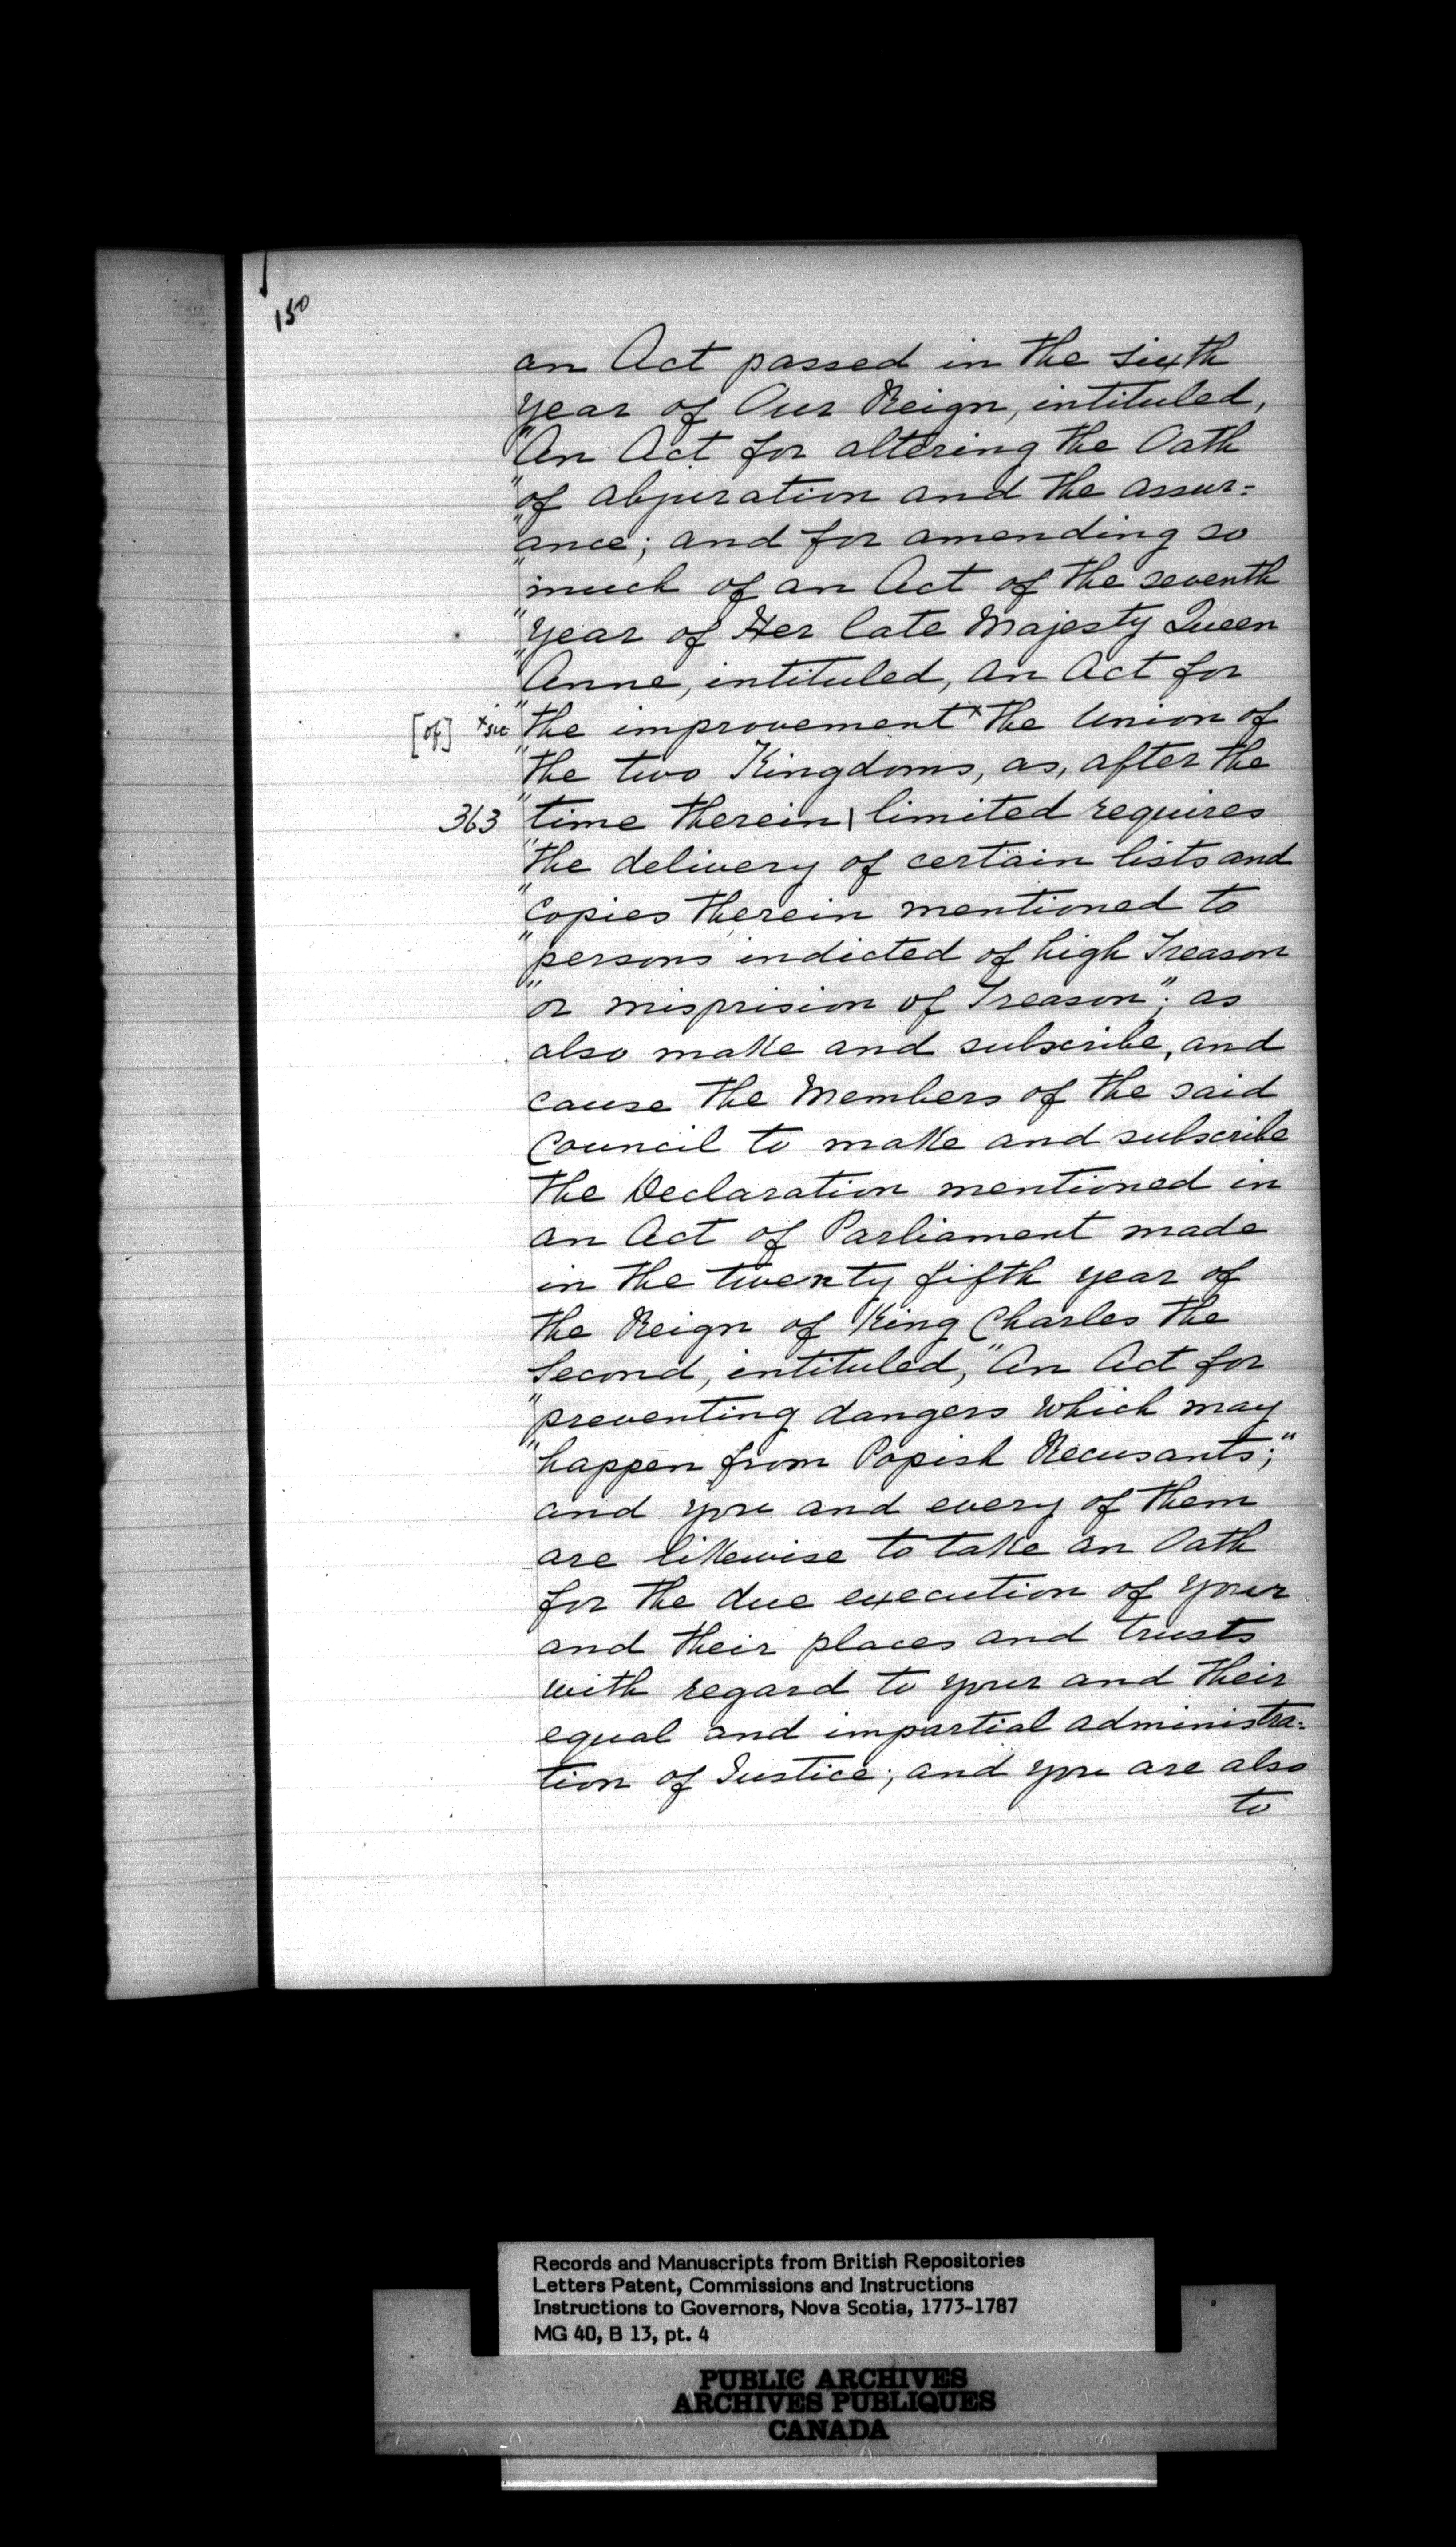 150
an Act passed in the sixth
year of Our Reign, intituled,
"An Act for altering the Oath
"of abjuration and the assur=
"ance; and for amending so
"much of an Act of the seventh
"year of Her late Majesty Queen
"Anne, intituled, an Act for
[of] +sic "the improvement x the Union of
"the two Kingdoms, as, after the
363 "time therein | limited requires
"the delivery of certain lists and
"copies therein mentioned to
"persons indicted of high Treason
"or misprision of Treason"; as
also make and subscribe, and
cause the Members of the said
Council to make and subscribe
the Declaration mentioned in
an Act of Parliament made
in the twenty fifth year of
the Reign of King Charles the
Second, intituled, "An Act for
"preventing dangers which may
"happen from Popish Recusants;"
and you and every of them
are likewise to take an Oath
for the due execution of your
and their places and trusts
with regard to your and their
equal and impartial administra=
tion of Justice; and you are also
to
Records and Manuscripts from British Repositories
Letters Patent, Commissions and Instructions
Instructions to Governors, Nova Scotia, 1773-1787
MG 40, B 13, pt. 4
PUBLIC ARCHIVES
ARCHIVES PUBLIQUES
CANADA